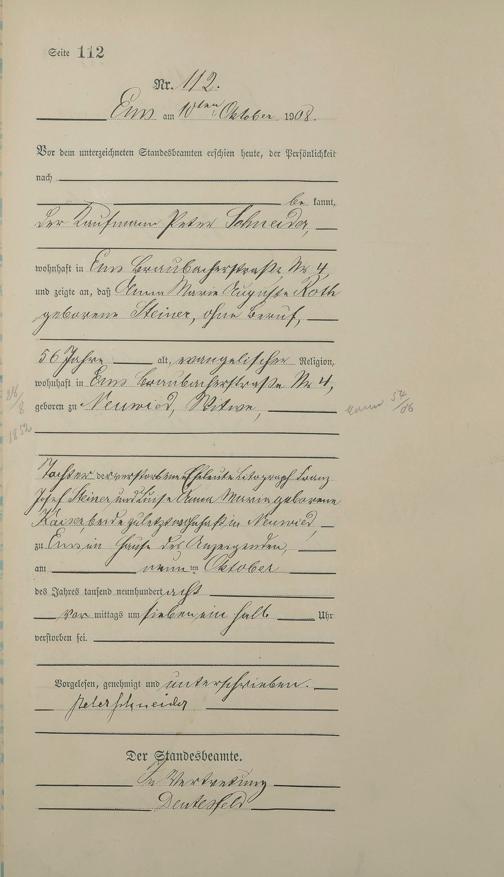 Seite 112
Nr. 112.
Ems am 10ten Oktober 1908.
Vor dem unterzeichneten Standesbeamten erschien heute, der Persönlichkeit
nach
be kannt,
der Kaufmann Peter Schneider,
wohnhaft in Ems Braubacherstraße Nr 4,
und zeigte an, daß Anna Marie Auguste Roth
geborene Steiner, ohne Beruf,
56 Jahre alt, evangelischer Religion,
wohnhaft in Ems Braubacherstraße Nr 4,
geboren zu Neuwied, Witwe,
1852
Tochter der verstorbenen Eheleute Litograph Franz
Josef Steiner und Anna Maria geborene
beide zuletzt wohnhaft in Neuwied,
zu Ems im Hause des Anzeigenden,
am neunten Oktober
des Jahres tausend neunhundert acht
vor mittags um sieben ein halb Uhr
verstorben sei.
Vorgelesen, genehmigt und unterschrieben.
Peter Schneider
Der Standesbeamte.
In Vertretung